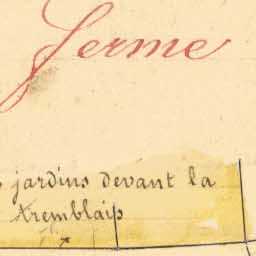 ferme
jardins devant la
tremblais